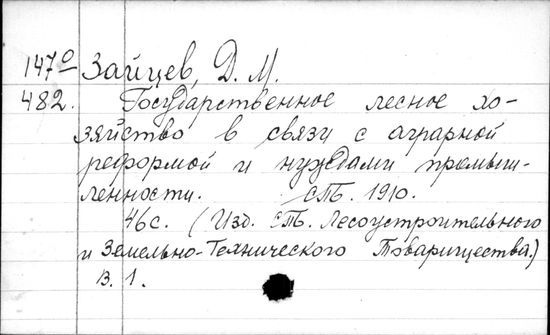 147⁰ Зайцев, Д. М.
482. Государственное лесное хо-
зяйство в связи с аграрной
реформой и нуждами промыш-
ленности. СПб. 1910.
46с. (Изд. СПб. Лесоустроительного
и Земельно-Технического Товарищества.)
В. 1.